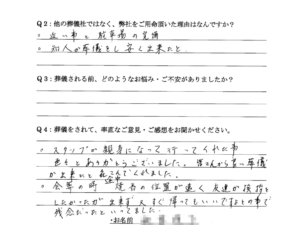 Q2：他の葬儀社ではなく、弊社をご用命頂いた理由はなんですか？
○ 近い事と 駐車場の完備
○ 知人が葬儀をし 安く出来たと
Q3：葬儀される前、どのようなお悩み・ご不安がありましたか？
Q4：葬儀をされて、率直なご意見・ご感想をお聞かせください。
○ スタッフが親身になって行ってくれた事
ありがとうございました。皆さんから良い葬儀
が出来いと
○ 会葬の時 の位置が遠く 友達が挨拶を
したかったが出来ず 又すぐ帰ってもいいですよとの事で
残念だったといってました
・お名前